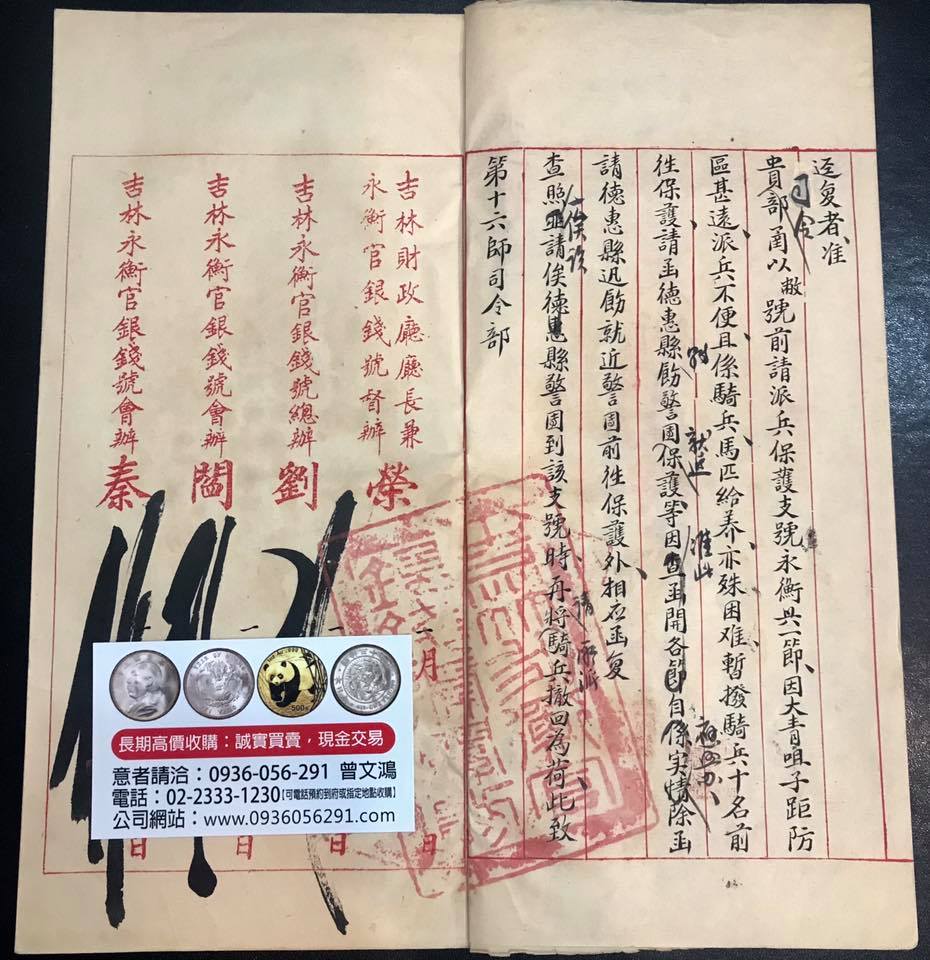 迳复者、准
司令
貴部函以敝號前請派兵保護支號永衡共一節、因大青咀子距防
區甚遠、派兵不便、且係騎兵、馬匹給养、亦殊困难、暫撥騎兵十名前
就近 准此
往保護、請函德惠縣飭警團保護等因、查函開各節自係实情、除函
請德惠縣迅飭就近警團前往保護外、相应函复
俟該 請 所派
查照並請俟德惠縣警團到該支號時、再將騎兵撤回為荷、此致
第十六師司令部
吉林財政廳廳長兼
永衡官銀錢號督辦 榮
吉林永衡官銀錢號總辦 劉
吉林永衡官銀錢號會辦 闔
吉林永衡官銀錢號會辦 秦
一月
日
日
日
日
500元
長期高價收購：誠實買賣，現金交易
意者請洽：0936-056-291 曾文鴻
電話：02-2333-1230【可電話預約到府或指定地點收購】
公司網站：www.0936056291.com